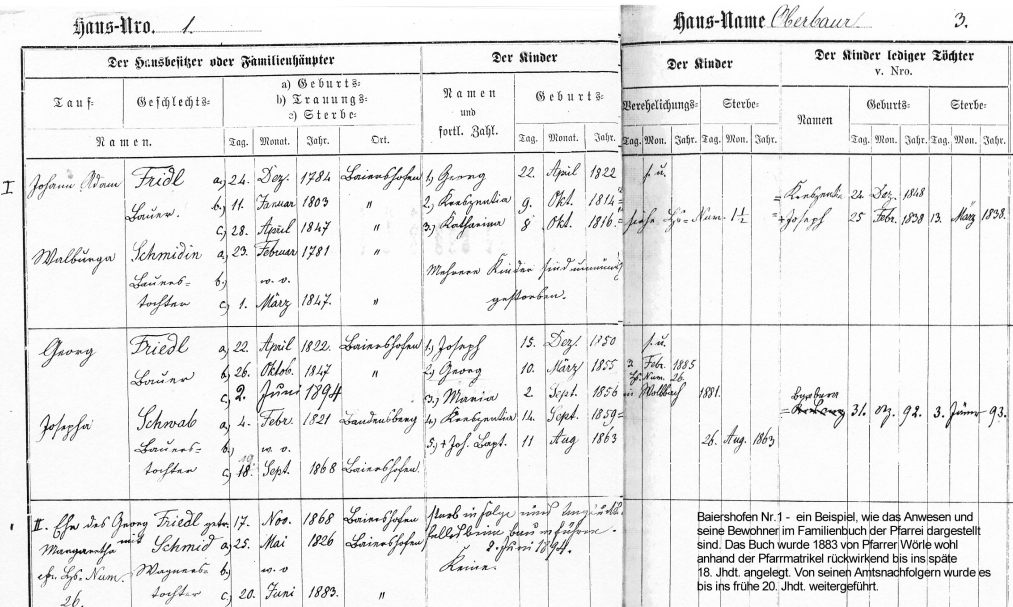 Haus-Nro. 1.
Haus-Name Oberbaur. 3.
Der Hausbesitzer oder Familienhäupter
Der Kinder
Der Kinder
Der Kinder lediger Töchter
v. Nro.
Tauf- Geschlechts-
Namen.
a) Geburts-
b) Trauungs-
c) Sterbe-
Tag. Monat. Jahr. Ort.
Namen
und
fortl. Zahl.
Geburts-
Tag. Mon. Jahr.
Verehelichungs- Sterbe-
Tag. Mon. Jahr. Tag. Mon. Jahr.
Namen
Geburts- Sterbe-
Tag. Mon. Jahr. Tag. Mon. Jahr.
I Johann Adam Fridl a) 24. Dez. 1784 Baiershofen 1) Georg 22. April 1822 s. u.
Bauer. b) 11. Januar 1803 " 2) Kreszentia 9. Okt. 1814 = Kreszentia 24 Dez. 1848
c) 28. April 1847 " 3) Katharina 8 Okt. 1816. = siehe Hs. Num. 1½ = + Joseph 25 Febr. 1838 13. März 1838.
Walburga Schmidin a) 23. Februar 1781 "
Bauers- b) w. o. Mehrere Kinder sind unmündig
tochter c) 1. März 1847. " gestorben.
Georg Friedl a) 22. April 1822. Baiershofen 1) Joseph 15. Dez. 1850 s. u.
Bauer b) 26. Oktob. 1847 " 2) Georg 10. März 1855 3. Febr. 1885
Hs. Num. 26.
c) 2. Juni 1894 3.) Maria 2. Sept. 1856 in Wollbach 1881.
Josepha Schwab a) 4. Febr. 1821 Landensberg 4) Kreszentia 14. Sept. 1859 = Barbara 31. 92. 3. Jäner 93.
Bauers- b) w. o. 5.) + Joh. Bapt. 11 Aug 1863 26. Aug. 1863
tochter c) 18. Sept. 1868 Baiershofen
II. Ehe des Georg Friedl getr. 17. Nov. 1868 Baiershofen starb in Folge eines Unglücks
mit
Margaretha Schmid a) 25. Mai 1826 Baiershofen falles beim
cfr. Hs. Num. Wagners- b) w. o 2. Juni 1894.
26. tochter c) 20. Juni 1883. " Keine.
Baiershofen Nr.1 - ein Beispiel, wie das Anwesen und
seine Bewohner im Familienbuch der Pfarrei dargestellt
sind. Das Buch wurde 1883 von Pfarrer Wörle wohl
anhand der Pfarrmatrikel rückwirkend bis ins späte
18. Jhdt. angelegt. Von seinen Amtsnachfolgern wurde es
bis ins frühe 20. Jhdt. weitergeführt.